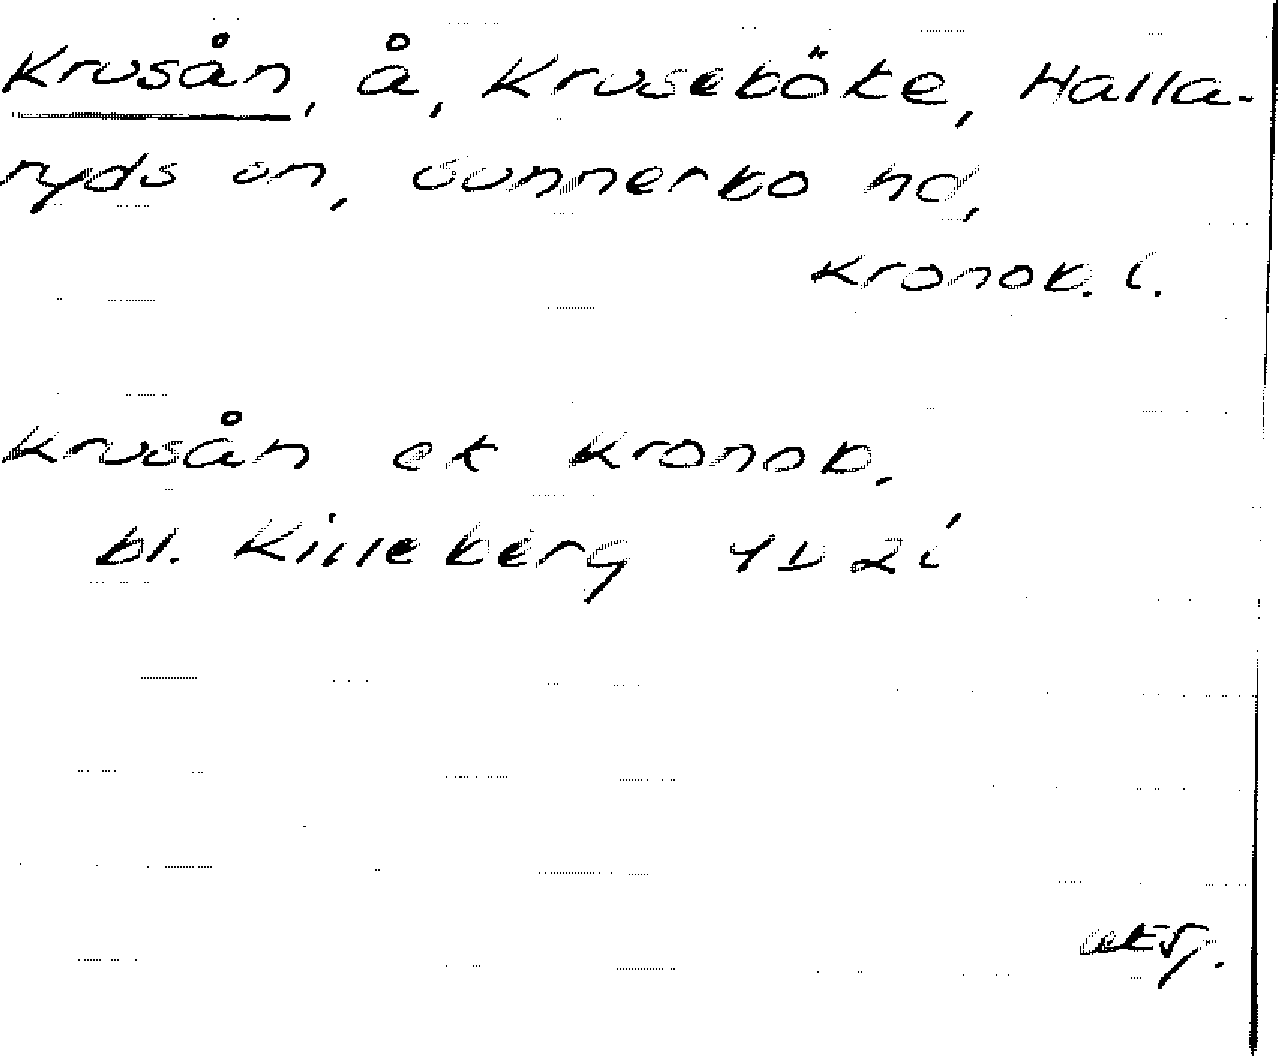 Krusån, å, Kruseböke, Halla-
ryds sn, Sunnerbo hd,
Kronob. l.
Krusån ek Kronob.
bl. Killeberg 4D 2i